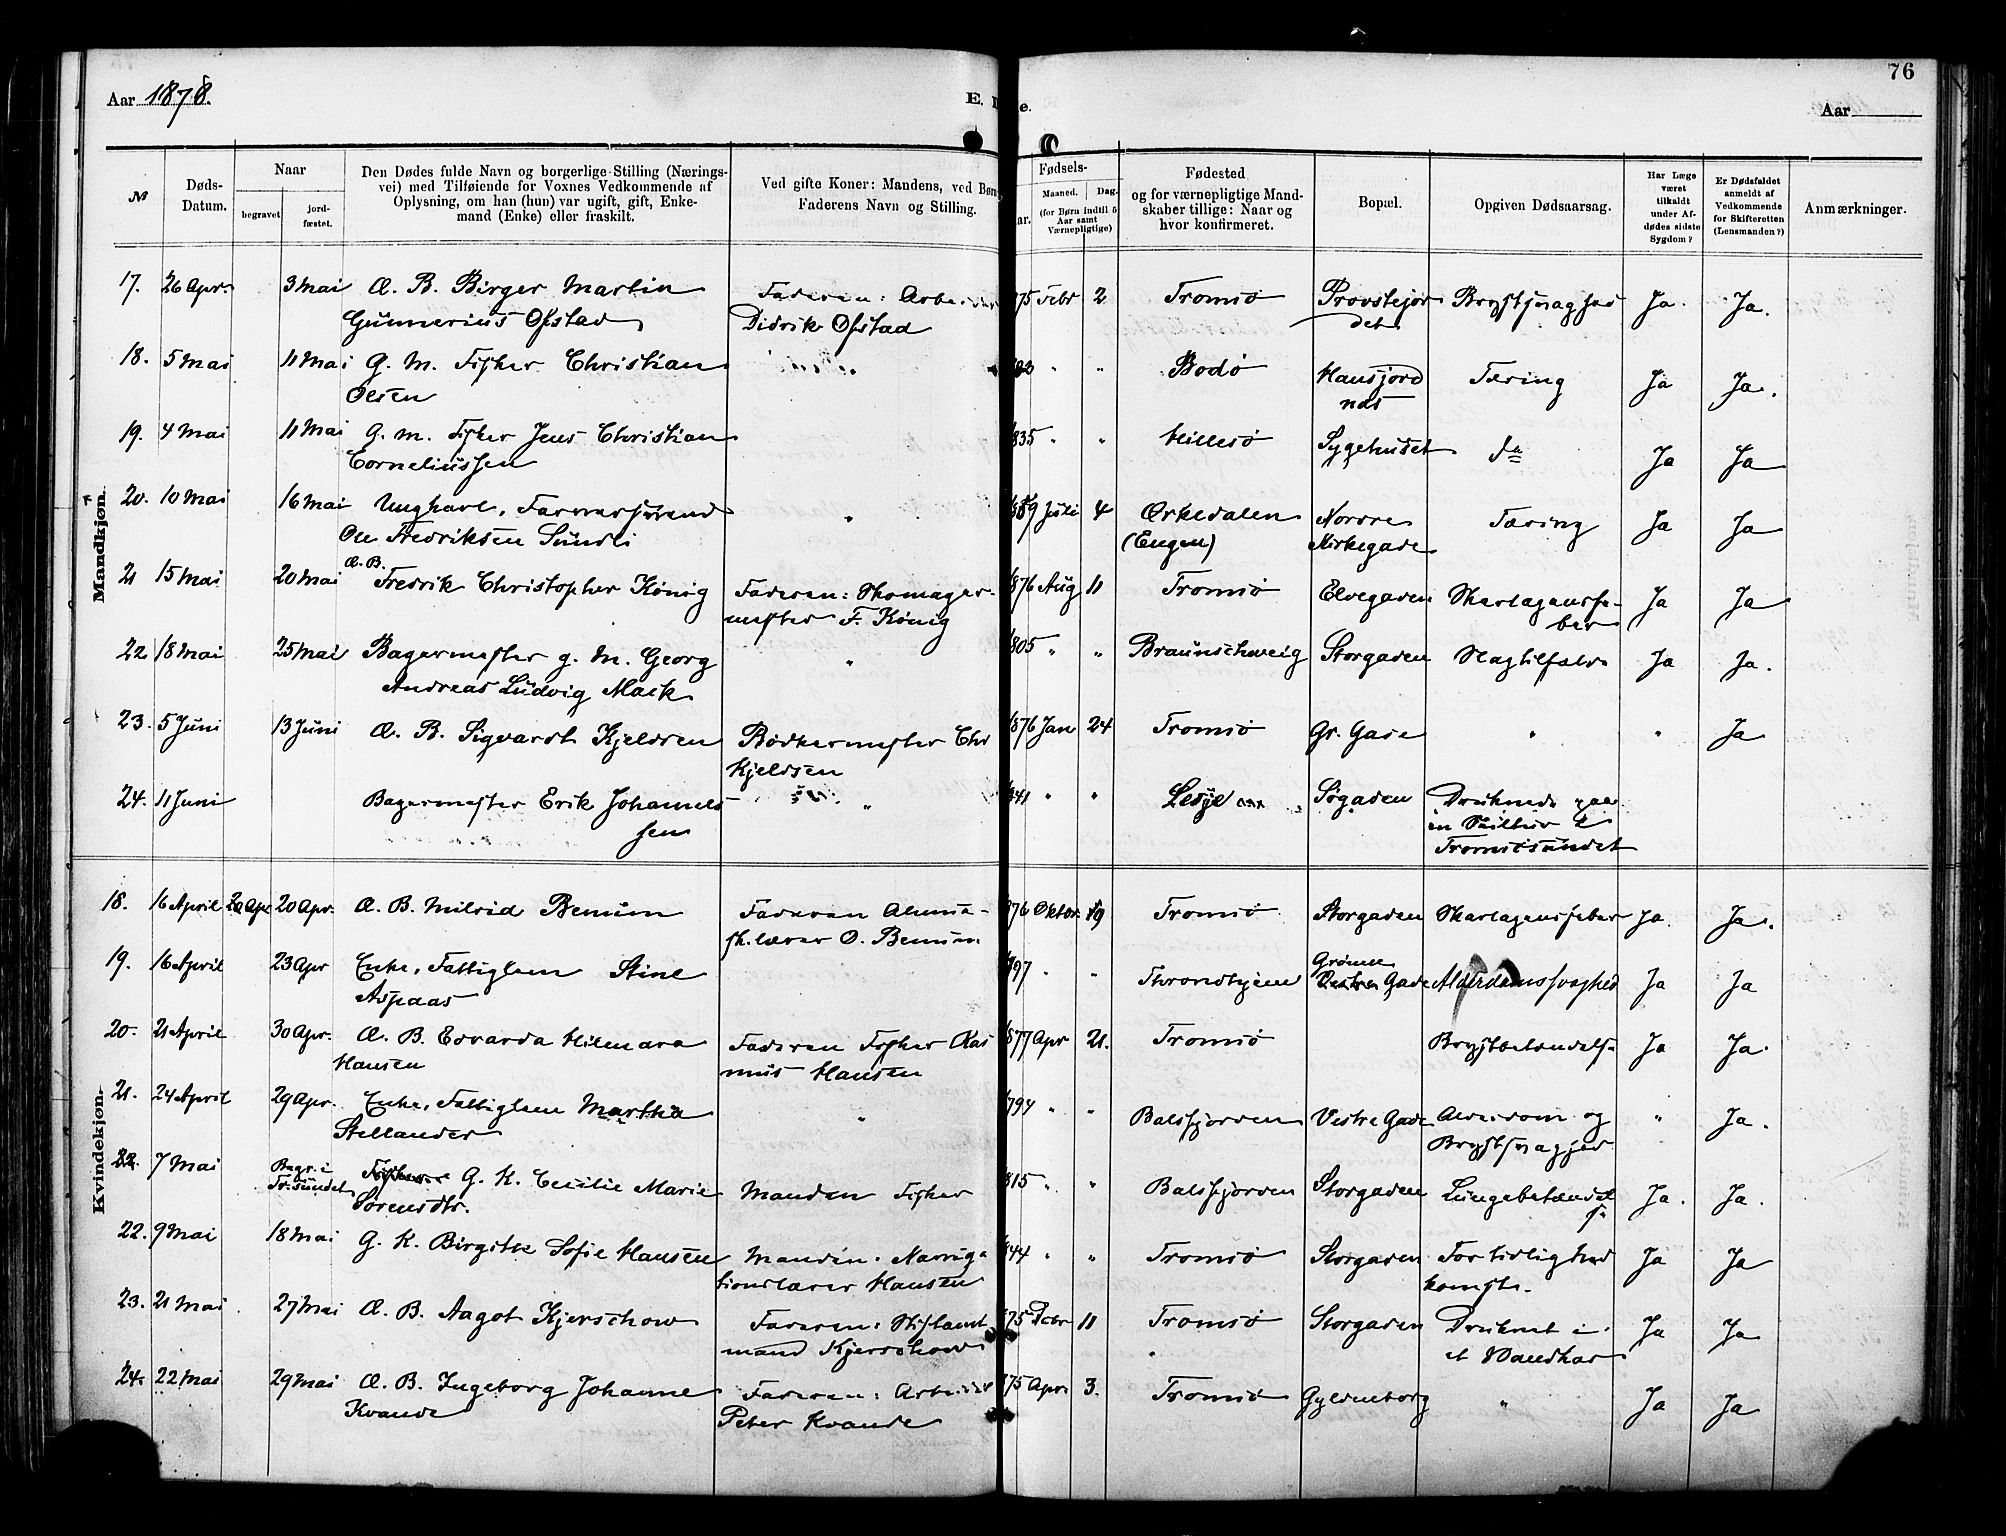 76
Aar 1878.
E. D
e.
Aar
№
Døds-
Datum.
Naar
begravet
jord-
fæstet.
Den Dødes fulde Navn og borgerlige Stilling (Nærings-
vei) med Tilføiende for Voxnes Vedkommende af
Oplysning, om han (hun) var ugift, gift, Enke-
mand (Enke) eller fraskilt.
Ved gifte Koner: Mandens, ved Børn
Faderens Navn og Stilling.
Fødsels-
ar.
Maaned.
Dag.
(for Børn indtil 5
Aar samt
Værnepligtige)
Fødested
og for værnepligtige Mand-
skaber tillige: Naar og
hvor konfirmeret.
Bopæl.
Opgiven Dødsaarsag.
Har Læge
været
tilkaldt
under Af-
dødes sidste
Sygdom?
Er Dødsfaldet
anmeldt af
Vedkommende
for Skifteretten
(Lensmanden?)
Anmærkninger.
Mandkjøn.
17. 26 Apr. 3 Mai Æ. B. Birger Martin Faderen: Arbeider 875 Febr 2 Tromsø Provstejor Brystsvaghed Ja. Ja.
Gunnerius Ofstad Didrik Ofstad det
18. 5 Mai 11 Mai G. M. Fisker Christian " " " Bodø Hansjord Tæring Ja Ja.
Olsen næs
19. 4 Mai 11 Mai G. M. Fisker Jens Christian 835 " " Hillesø Sygehuset do Ja Ja
Corneliussen
20. 10 Mai 16 Mai Ungkarl, Farversvend " 1859 Juli 4 Ørkedalen Nordre Tæring Ja Ja
Ole Fredriksen Sundli (Engen) Kirkegade
21 15 Mai 20 Mai Æ. B. Fredrik Christopher König Faderen: Skomager- 1876 Aug 11 Tromsø Elvegaden Skarlagensfe- Ja Ja
mester F. König ber
22 18 Mai 25 Mai Bagermester g. M. Georg " 1805 " " Braunschweig Storgaden Slagtilfælde Ja Ja.
Andreas Ludvig Mack
23. 5 Juni 13 Juni Æ. B. Sigvardt Kjeldsen Bødkermester Chr 1876 Jan 24 Tromsø Gr. Gade " " Ja
Kjeldsen
24. 11 Juni Bagermester Erik Johannes- " 841 " " Lesje Søgaden Druknede paa
sen en Seiltur i
Tromsøsundet
Kvindekjøn.
18. 16 April 20 Apr 20 Apr. Æ. B. Milrid Bemum Faderen Almue- 876 Oktbr. 19 Tromsø Storgaden Skarlagensfeber Ja. Ja.
sk.lærer O. Bemum.
19. 16 April 23 Apr Enke, Fattiglem Stine 1797 " " Throndhjem Grønne Gade Alderdomssvaghed Ja Ja
Aspaas
20. 21 April 30 Apr. Æ. B. Edvarda Hilmara Faderen Fisker Ras 1877 Apr 21. Tromsø Brystbetændelse Ja Ja.
Hansen mus Hansen
21. 24 April 29 Apr. Enke, Fattiglem Martha " 794 " " Balsfjorden Vestre Gade Alderdom og " Ja.
Stellander Brystsvaghed
22. 7 Mai Begr. i G. K. Cecilie Marie Manden Fisker 815 " " Balsfjorden Storgaden Lungebetændel Ja. Ja.
Tr.sundet Sørensdtr. se
22. 9 Mai 18 Mai G. K. Birgitte Sofie Hansen Manden: Naviga 844 " " Tromsø Storgaden For tidlig Ned Ja Ja
tionslærer Hansen komst.
23. 21 Mai 27 Mai Æ. B. Aagot Kjerschow Faderen: Stiftamt 875 Debr 11 Tromsø Storgaden Druknet i Ja Ja
mand Kjerschow et Vandkar
24. 22 Mai 29 Mai Æ. B. Ingeborg Johanne Faderen: Arbeider 875 Apr. 3. Tromsø Gyldenborg " Ja Ja
Kvande Peter Kvande